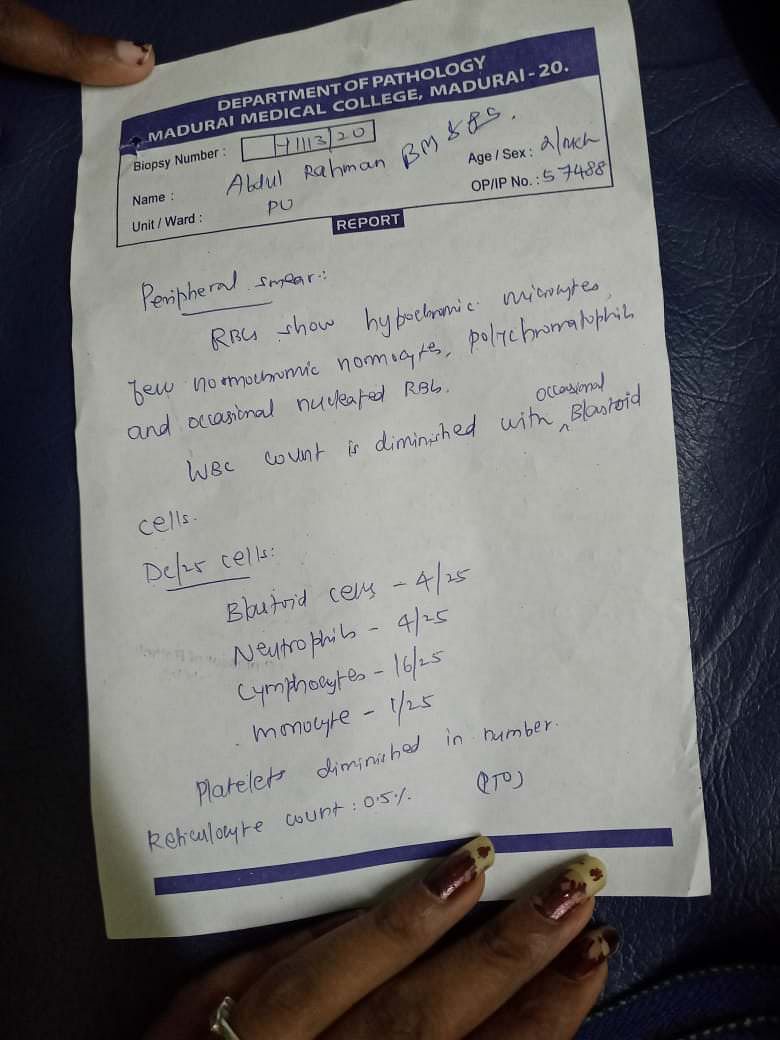 DEPARTMENT OF PATHOLOGY
MADURAI MEDICAL COLLEGE, MADURAI - 20.
Biopsy Number : 1113/20
Name : Abdul Rahman BM & PS.
Age / Sex : 2/mch
Unit / Ward : PU
OP/IP No. : 57488
REPORT
Peripheral smear:
RBCs show hypochromic microcytes,
few normochromic normocytes, polychromatophils
and occasional nucleated RBCs.
WBC count is diminished with occasional Blastoid
cells.
DC/25 cells:
Blastoid cells - 4/25
Neutrophils - 4/25
Lymphocytes - 16/25
Monocyte - 1/25
Platelets diminished in number.
Reticulocyte count : 0.5%. (PTO)